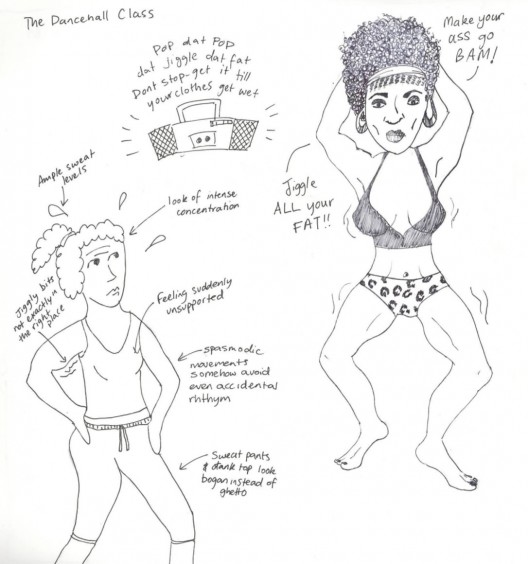 The Dancehall Class
Pop dat Pop
dat jiggle dat fat
Dont stop-get it till
your clothes get wet
Make your
ass go
BAM!
Jiggle
ALL your
FAT!!
Ample sweat
levels
look of intense
concentration
Jiggly bits
not exactly in
the right
place
Feeling suddenly
unsupported
spasmodic
movements
somehow avoid
even accidental
rhthym
Sweat pants
& dank top look
bogan instead of
ghetto